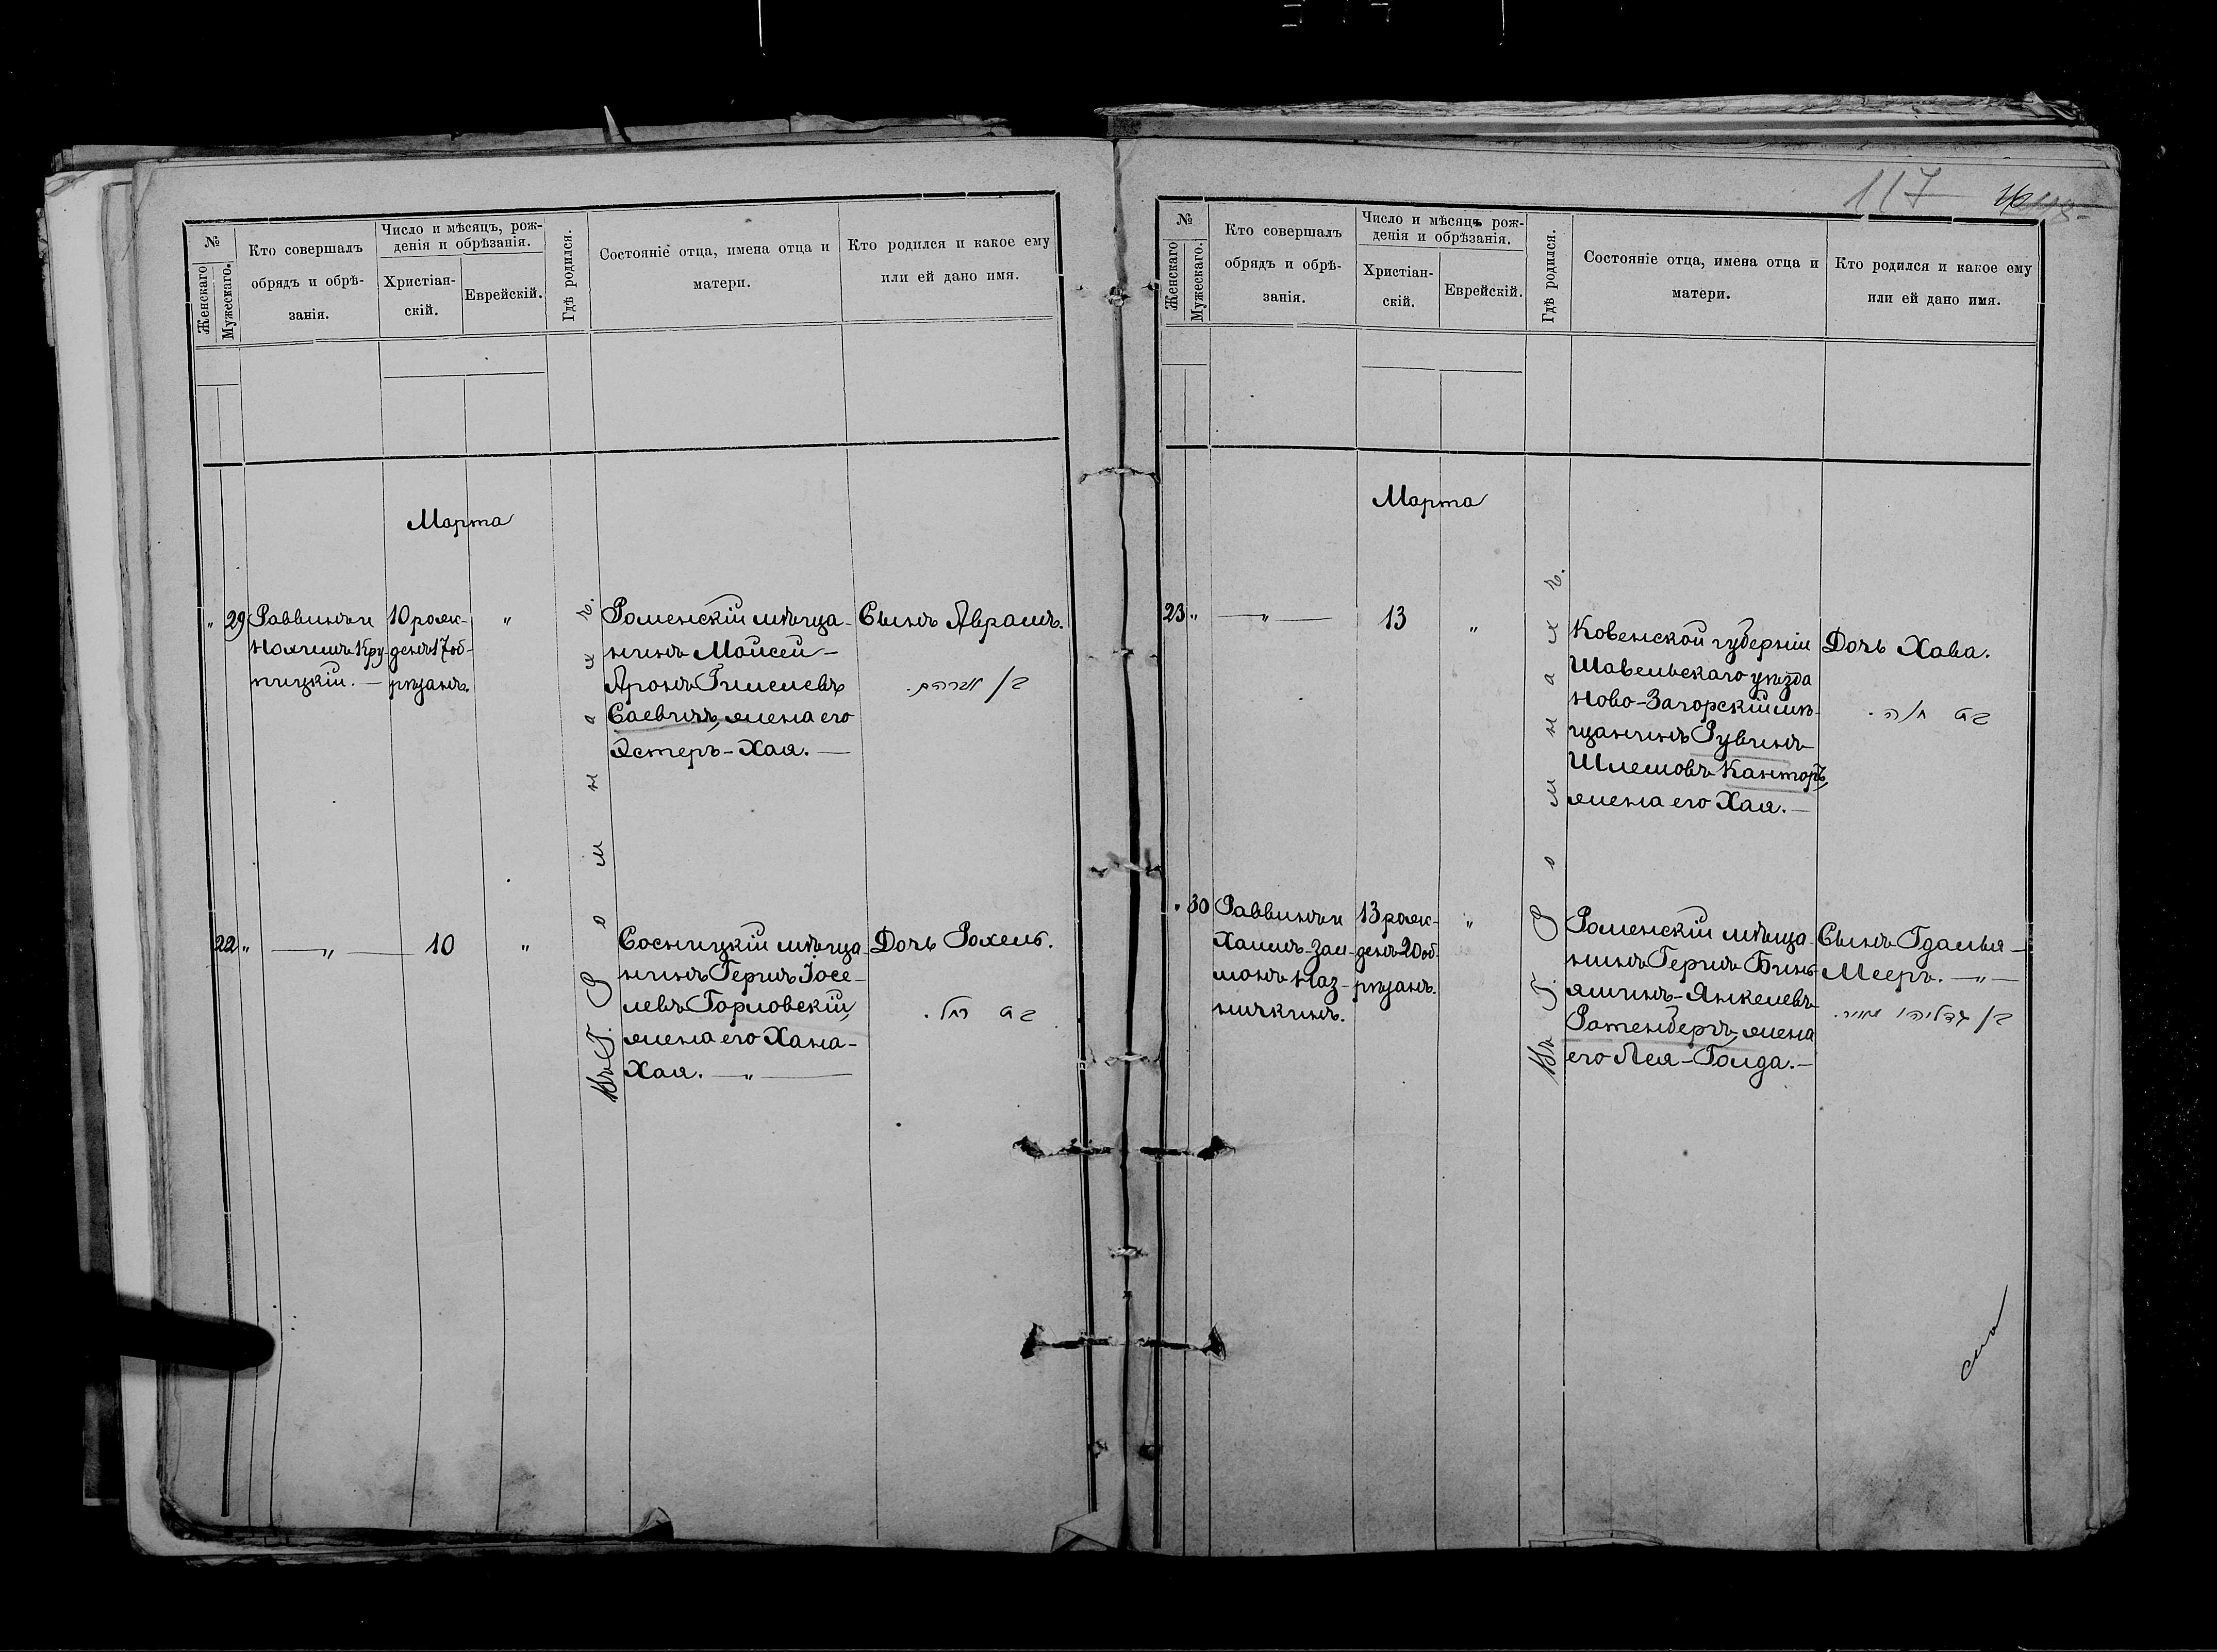 №
Женскаго
Мужескаго.
Кто совершалъ
обрядъ и обрѣ-
занія.
Число и мѣсяцъ, рож-
денія и обрѣзанія.
Христіан-
скій.
Еврейскій.
Гдѣ родился.
Состояніе отца, имена отца и
матери.
Кто родился и какое ему
или ей дано имя.
Марта
" 29
Раввинъ и
Нохимъ Кру-
пицкій. —
10 рож-
денъ 17 об-
рѣзанъ.
"
Роменскій мѣща-
нинъ Мойсей-
Аронъ Гишелевъ
Саевичъ, жена его
Эстеръ-Хая. —
Сынъ Аврамъ.
בן אברהם.
22 "
— " —
10
"
Сосницкій мѣща-
нинъ Гершъ Іосе-
левъ Горловскій,
жена его Хана-
Хая. — " —
Дочь Рохель.
בת רחל.
Въ Г. Ромнахъ.
117
№
Женскаго
Мужескаго.
Кто совершалъ
обрядъ и обрѣ-
занія.
Число и мѣсяцъ рож-
денія и обрѣзанія.
Христіан-
скій.
Еврейскій.
Гдѣ родился.
Состояніе отца, имена отца и
матери.
Кто родился и какое ему
или ей дано имя.
Марта
23 "
— " —
13
"
Ковенской губерніи
Шавельскаго уѣзда
Ново-Загорскій мѣ-
щанинъ Рувинъ
Шлемовъ Канторъ,
жена его Хая. —
Дочь Хава.
בת חוה.
" 30
Раввинъ и
Хаимъ-Зал-
монъ Маз-
ничкинъ.
13 рож-
денъ 20 об-
рѣзанъ.
"
Роменскій мѣща-
нинъ Гершъ Бинь-
яминъ-Янкелевъ
Ротенбергъ, жена
его Лея-Голда. —
Сынъ Гдалья-
Мееръ. — " —
בן גדליהו מאיר.
Въ Г. Ромнахъ.